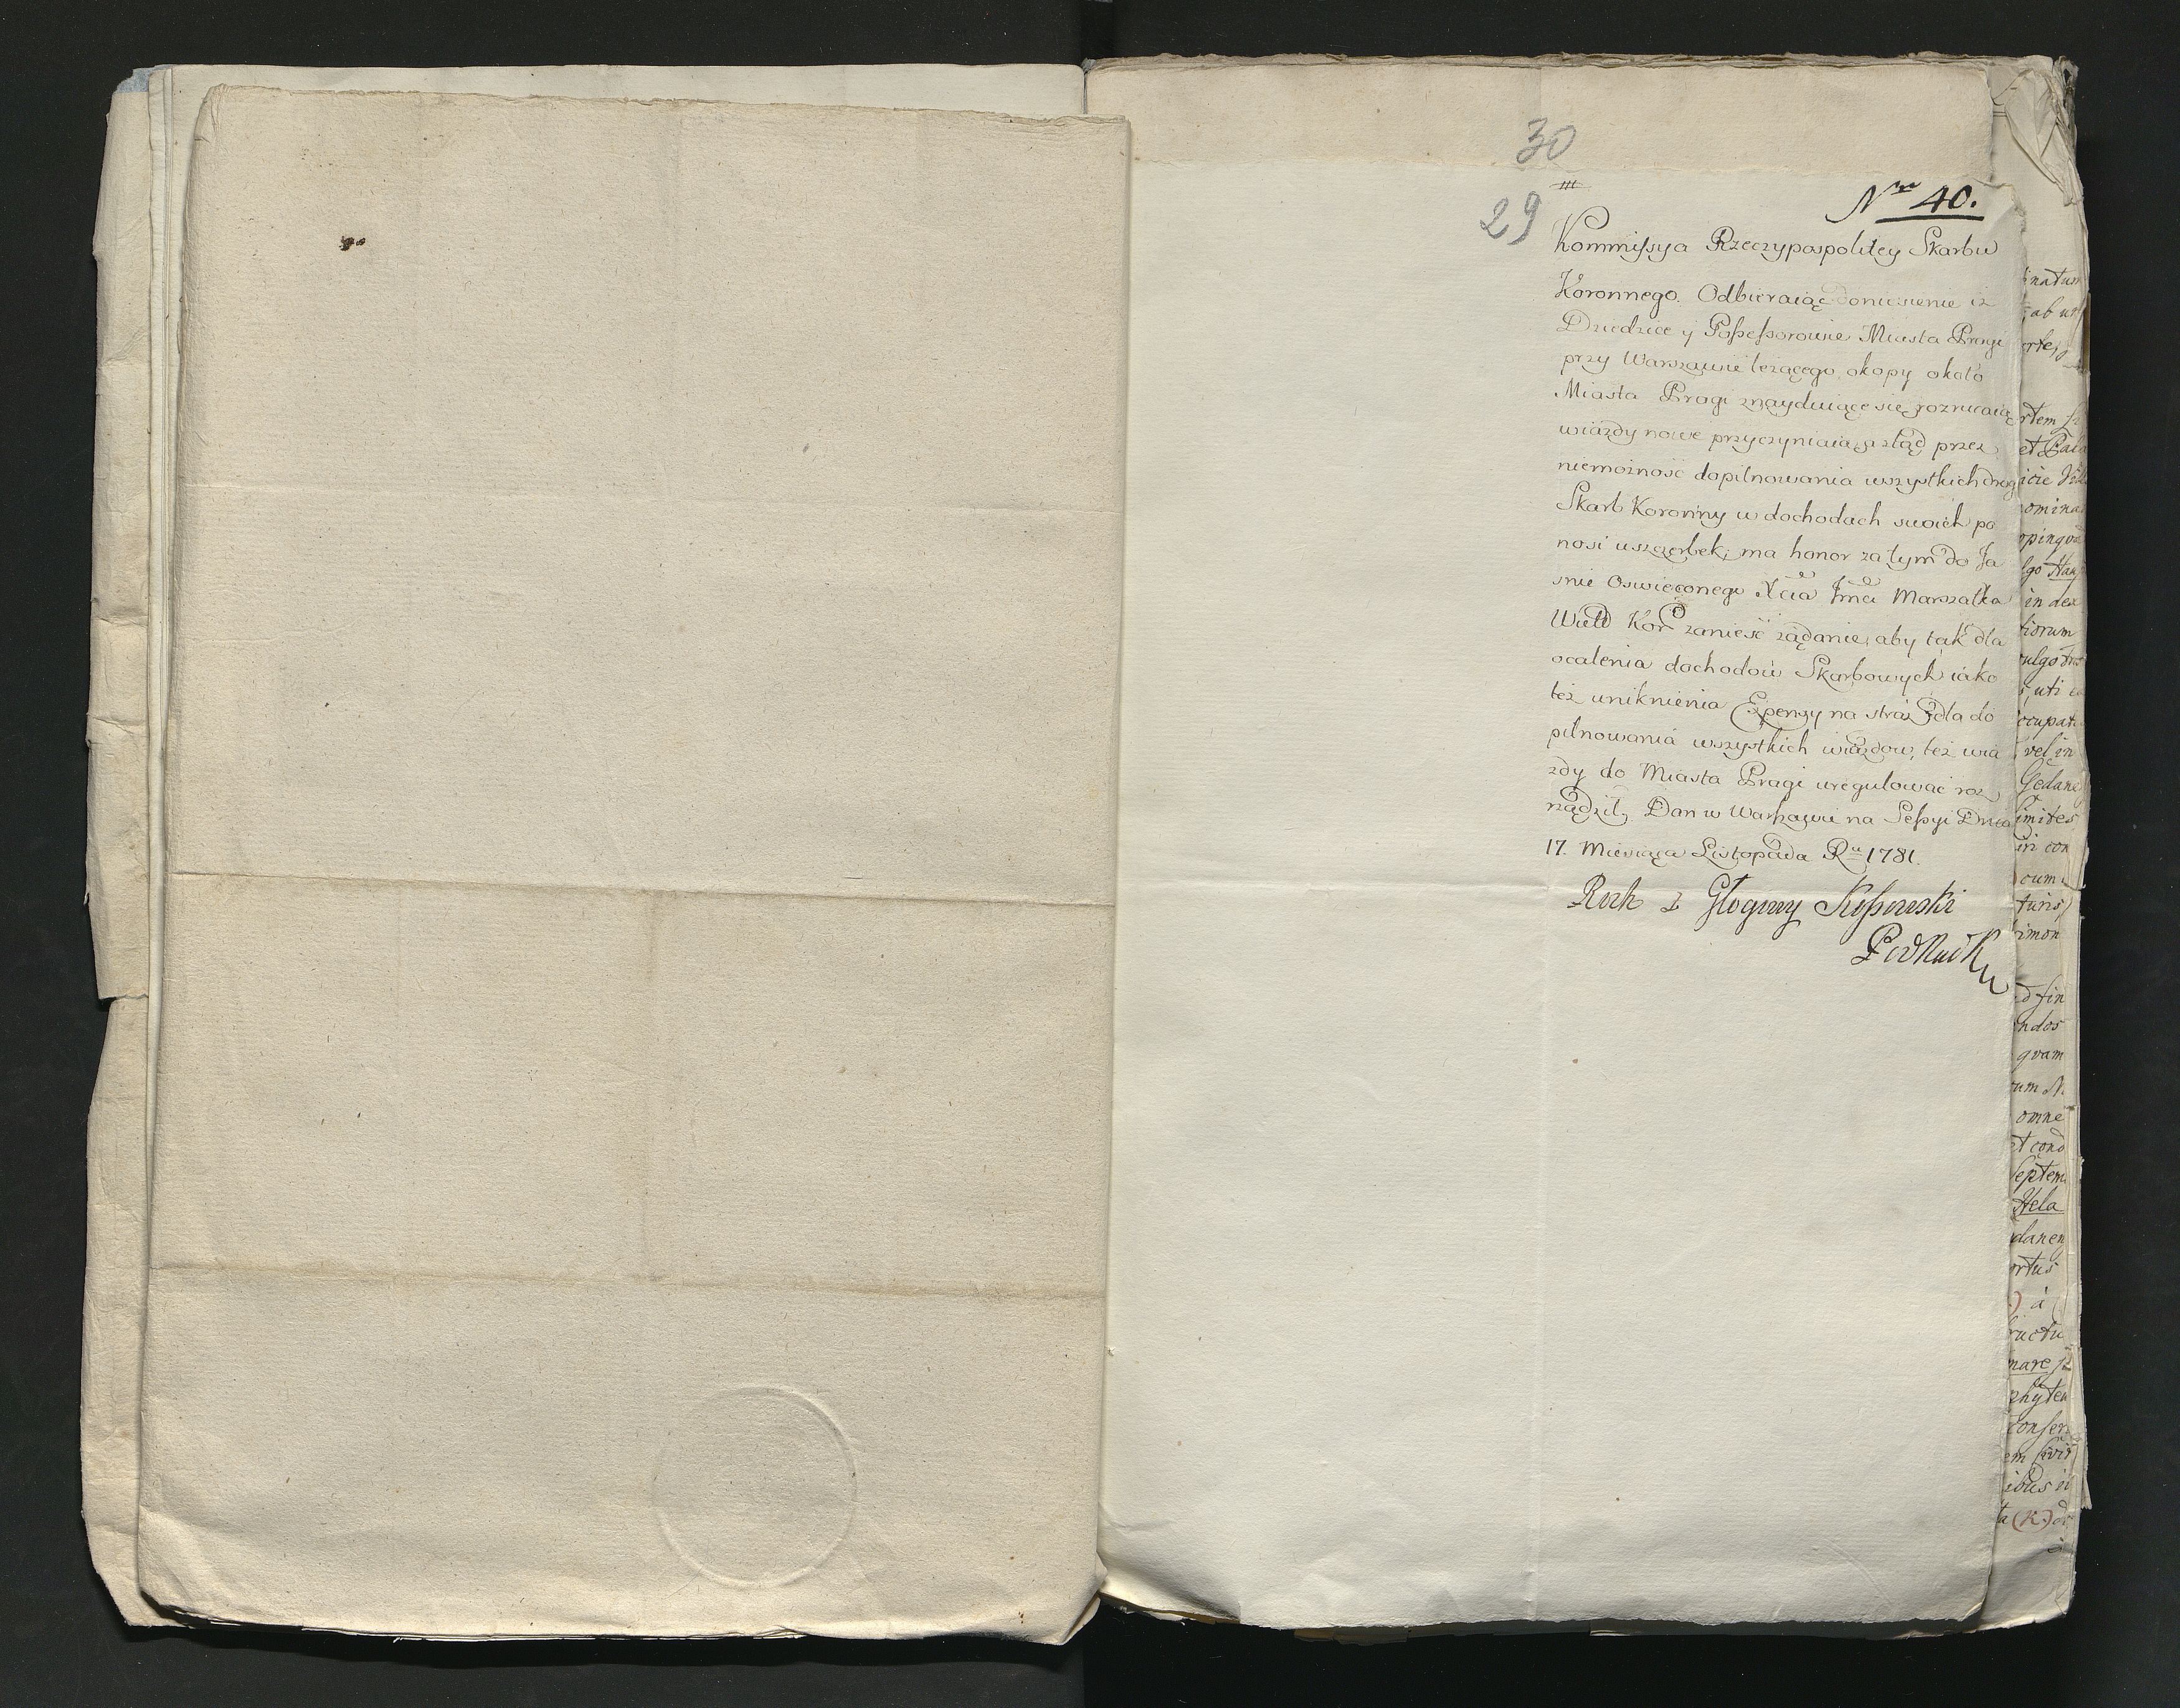 30
29
Nro 40.
Kommissya Rzeczypospolitey Skarbu
Koronnego. Odbieraiąc doniesienie iz
Dziedzice y Possessorowie Miasta Pragi
przy Warszawie leżącego, okopy około
Miasta Pragi znayduiące się rozrucaią
wiazdy nowe przyczyniaią, a ztąd przez
niemożność dopilnowania wszystkich drog
Skarb Koronny w dochodach swoich po
nosi uszczerbek; ma honor zatym do Ja
snie Oswieconego Xcia Jmci Marszałka
Wielo Kor zanieść żądanie, aby tak dla
ocalenia dochodow Skarbowych iako
też uniknienia Expensy na straż dla do
pilnowania wszystkich wiazdow, też wia
zdy do Miasta Pragi uregulować roz
rządził, Dan w Warszawie na Sessyi Dnia
17. Miesiąca Listopada Ru 1781.
Roch z Głogowy Kossowski
natum
ab
rtem
et
omina
in dex
tiorum
uti
vel in
Gedane
imites
in con
cum
turis
imon
fin
ndos
qvam
um
omne
et cond
Septem
Hela
danen
ortus
ructu
mare
conser
em
ibus
ta (K.)